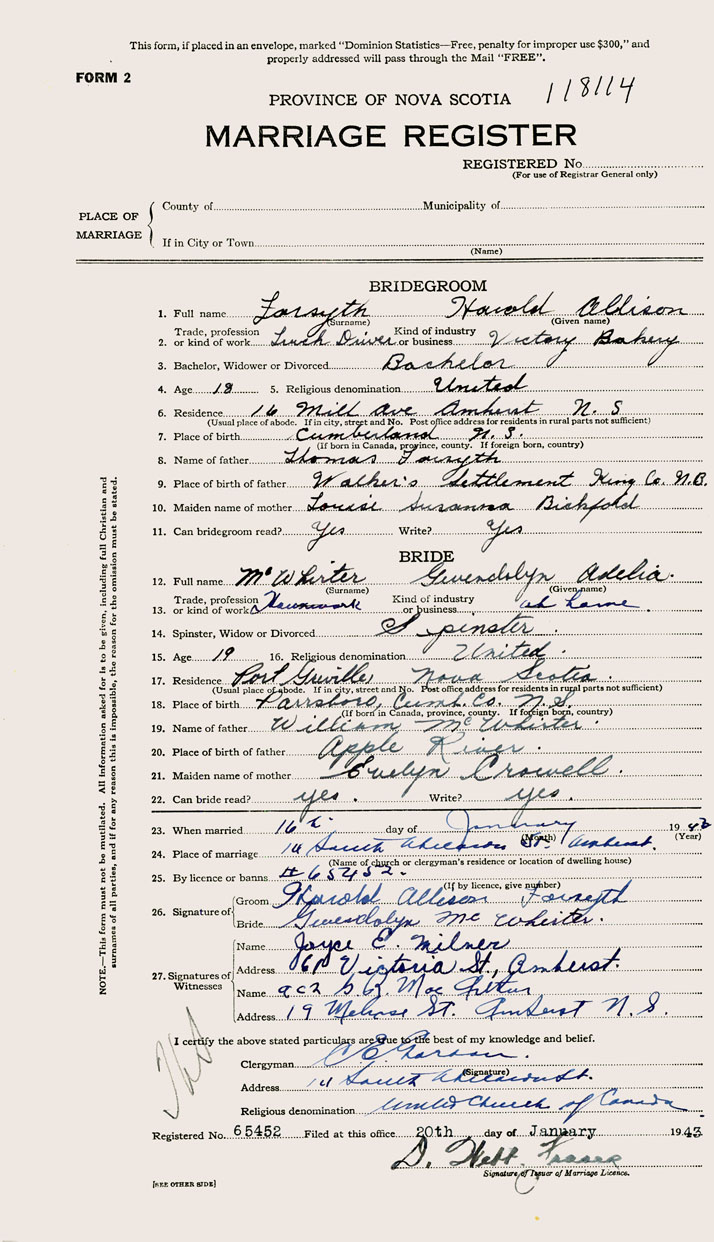 This form, if placed in an envelope, marked "Dominion Statistics—Free, penalty for improper use $300," and
properly addressed will pass through the Mail "FREE".
FORM 2
118114
PROVINCE OF NOVA SCOTIA
MARRIAGE REGISTER
REGISTERED No.
(For use of Registrar General only)
PLACE OF MARRIAGE
County of Municipality of
If in City or Town
(Name)
BRIDEGROOM
1. Full name Forsyth Harold Allison
(Surname) (Given name)
2. Trade, profession or kind of work Truck Driver Kind of industry or business Victory Bakery
3. Bachelor, Widower or Divorced Bachelor
4. Age 18 5. Religious denomination United
6. Residence 16 Mill Ave Amherst N. S
(Usual place of abode. If in city, street and No. Post office address for residents in rural parts not sufficient)
7. Place of birth Cumberland N. S.
(If born in Canada, province, county. If foreign born, country)
8. Name of father Thomas Forsyth
9. Place of birth of father Walker's Settlement King Co. N.B.
10. Maiden name of mother Louise Susanna Bickford
11. Can bridegroom read? Yes Write? Yes
BRIDE
12. Full name McWhirter Gwendolyn Adelia.
(Surname) (Given name)
13. Trade, profession or kind of work Housework Kind of industry or business at home.
14. Spinster, Widow or Divorced Spinster.
15. Age 19 16. Religious denomination United.
17. Residence Port Greville, Nova Scotia.
(Usual place of abode. If in city, street and No. Post office address for residents in rural parts not sufficient)
18. Place of birth Parrsboro, Cumb. Co. N.S.
(If born in Canada, province, county. If foreign born, country)
19. Name of father William McWhirter.
20. Place of birth of father Apple River.
21. Maiden name of mother Evelyn Crowell.
22. Can bride read? yes. Write? yes.
23. When married 16th day of January 1943
(Month) (Year)
24. Place of marriage South St. Amherst.
(Name of church or clergyman's residence or location of dwelling house)
25. By licence or banns # 65452.
(If by licence, give number)
26. Signature of
Groom Harold Allison Forsyth
Bride Gwendolyn McWhirter.
27. Signatures of Witnesses
Name Joyce E. Milner
Address Victoria St., Amherst.
Name Mac Arthur
Address 19 Melrose St. Amherst N. S.
I certify the above stated particulars are true to the best of my knowledge and belief.
Clergyman C. E.
(Signature)
Address South St.
Religious denomination United Church of Canada
Registered No. 65452 Filed at this office 20th day of January 1943
D.
Signature of Issuer of Marriage Licence.
[SEE OTHER SIDE]
NOTE.—This form must not be mutilated. All information asked for is to be given, including full Christian and
surnames of all parties, and if for any reason this is impossible, the reason for the omission must be stated.